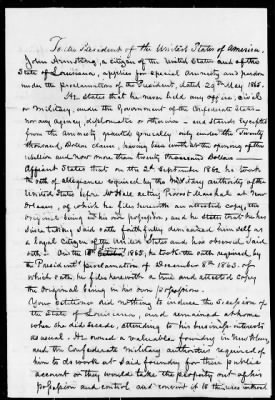 To the President of the United States of America,
John Armstrong, a citizen of the United States and of the
State of Louisiana, applies for special Amnesty and pardon
under the proclamation of the President, dated 29th May 1865.
He states that he never held any office, civil
or Military, under the Government of the Confederate States
nor any agency, diplomatic or otherwise – and stands excepted
from the amnesty granted generally only under the Twenty
thousand Dollar clause, having been worth at the opening of the
rebellion and now more than twenty thousand Dollars
Affiant States that on the 2d September 1862 he took
oath of allegiance required by the military authority of the
United States before acting Provost Marshal of New
Orleans, of which he files herewith an attested copy, the
original being in his own possession, and he states that he has
since taking said oath faithfully demeaned himself as
a loyal citizen of the United States and has observed said
oath – On the 1863, he took the oath required by
the President's proclamation of December 8th 1863 – of
which oath, he files herewith a true and attested copy
the original being in his own possession.
Your petitioner did nothing to induce the Secession of
the State of Louisiana, and remained at home
when she did secede, attending to his business interests
as usual. He owned a valuable foundry in New Orleans,
and the Confederate Military authorities required of
him to do work at said foundry for their public
account or they would take the property out of his
possession and control and convert it to their use